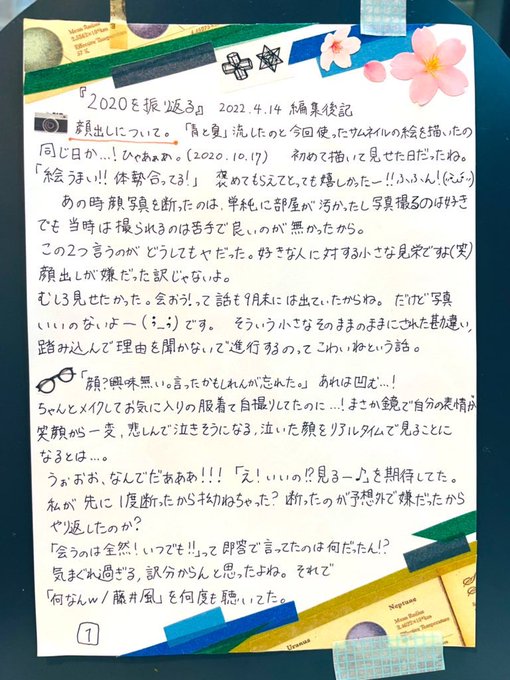 Mean Radius
Effective Temperature
『2020を振り返る』 2022.4.14 編集後記
顔出しについて。「青と夏」流したのと今回使ったサムネイルの絵を描いたの
同じ日か…!ひゃぁぁぁ。(2020.10.17) 初めて描いて見せた日だったね。
「絵うまい!! 体勢合ってる!」 褒めてもらえてとっても嬉しかったー!!ふふん!
あの時顔写真を断ったのは、単純に部屋が汚かったし写真撮るのは好き
でも当時は撮られるのは苦手で良いのが無かったから。
この2つ言うのがどうしてもヤだった。好きな人に対する小さな見栄ですよ(笑)
顔出しが嫌だった訳じゃないよ。
むしろ見せたかった。会おう!って話も9月末には出ていたからね。だけど写真
いいのないよー(;_;)です。 そういう小さなそのままのままにされた勘違い,
踏み込んで理由を聞かないで進行するのってこわいねという話。
「顔?興味無い。言ったかもしれんが忘れた。」あれは凹む…!
ちゃんとメイクしてお気に入りの服着て自撮りしてたのに…!まさか鏡で自分の表情が
笑顔から一変,悲しんで泣きそうになる,泣いた顔をリアルタイムで見ることに
なるとは…。
うぉおお、なんでだぁああ!!!「え!いいの!?見るー♪」を期待してた。
私が先に1度断ったから拗ねちゃった?断ったのが予想外で嫌だったから
やり返したのか?
「会うのは全然!いつでも!!」って即答で言ってたのは何だったん!?
気まぐれ過ぎる,訳分からんと思ったよね。それで
「何なんw/藤井風」を何度も聴いてた。
1
Neptune
Mean Radius
Effective Temperature
Uranus